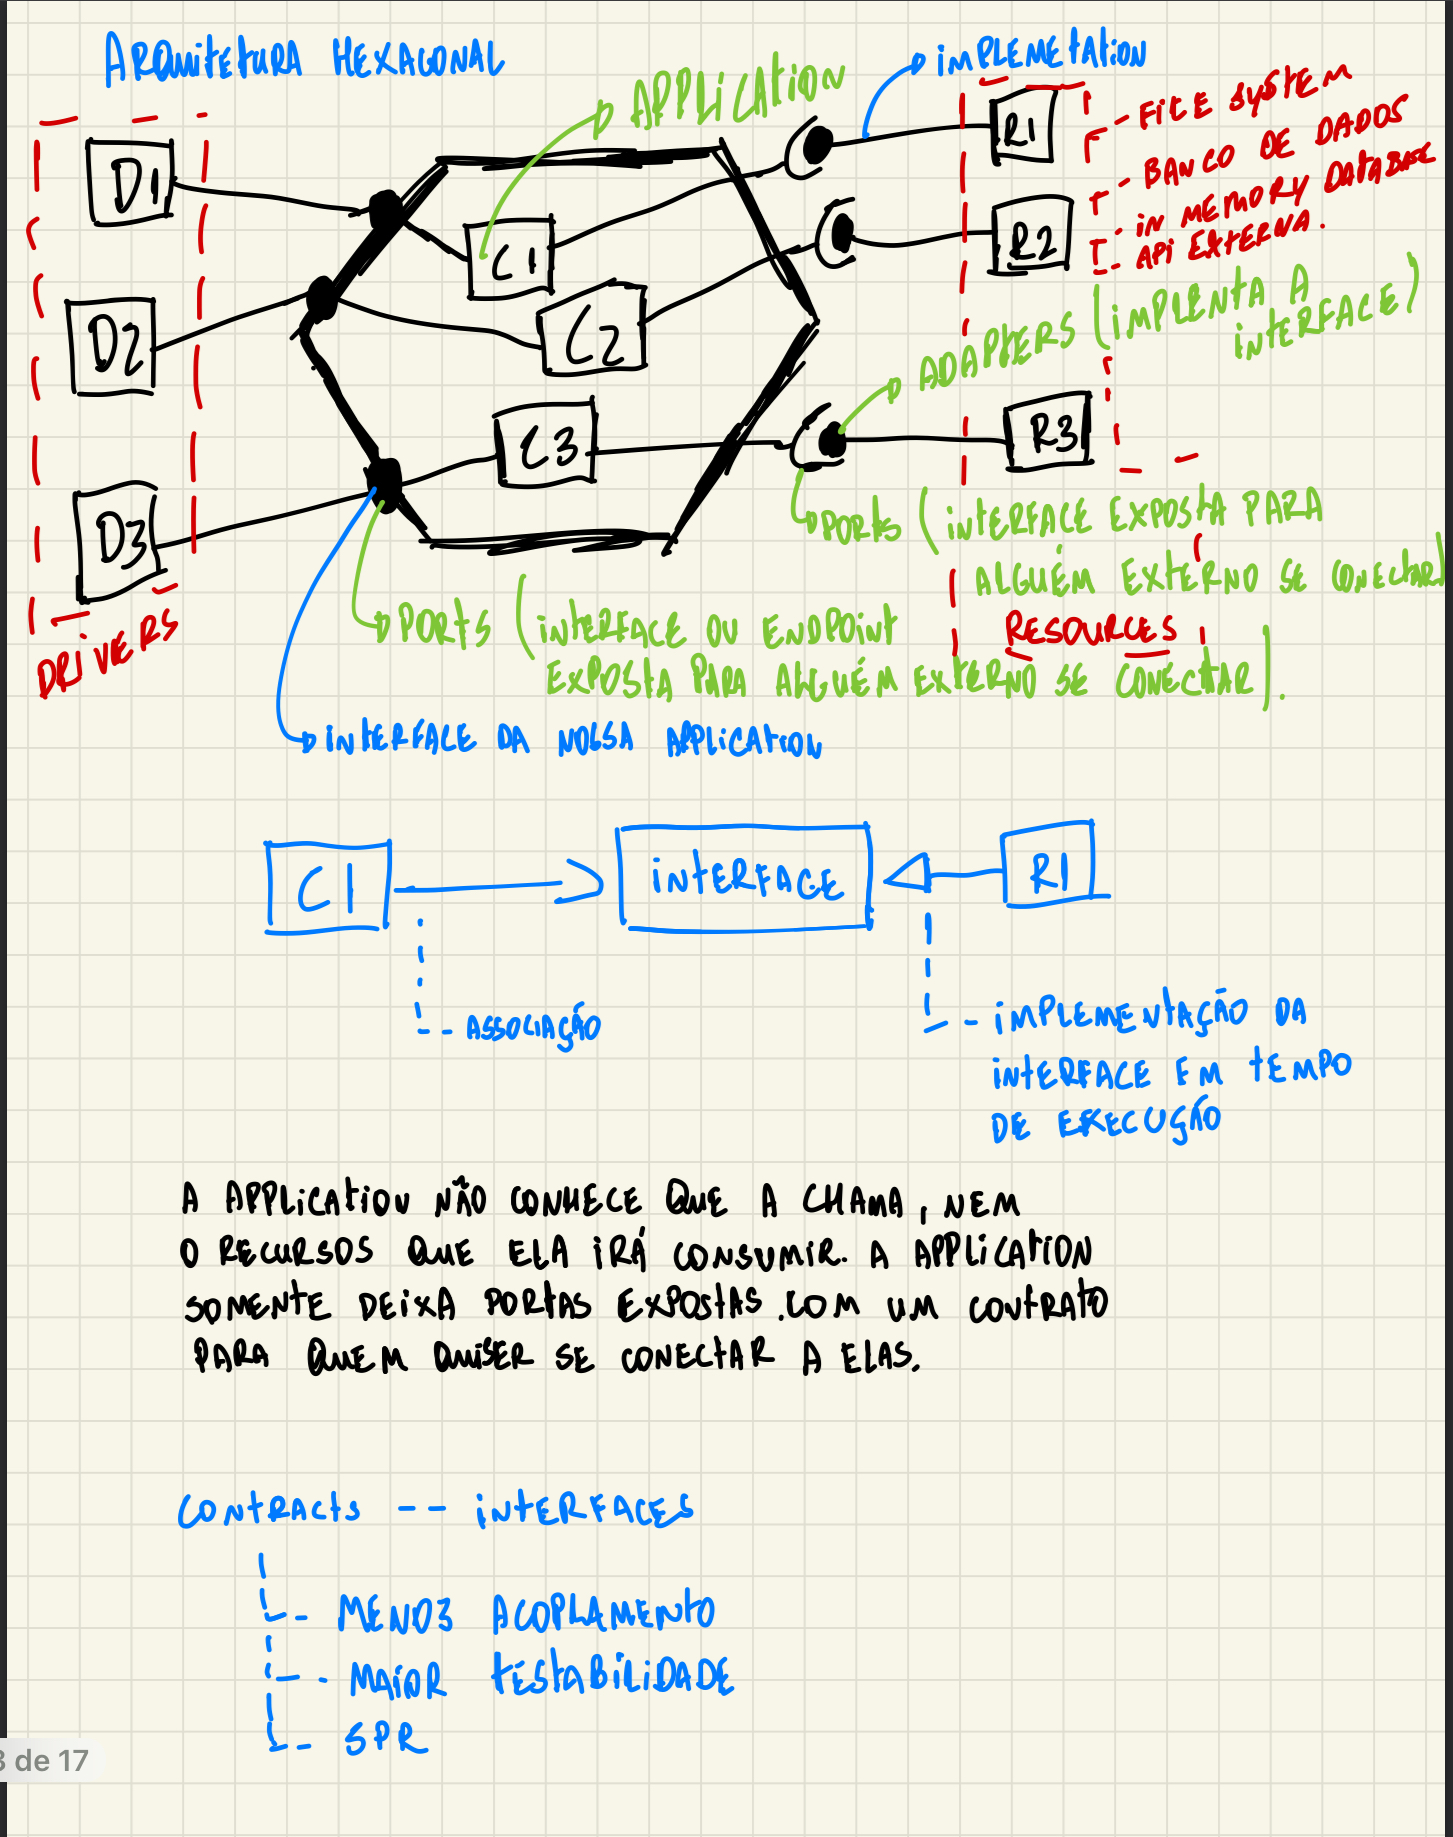 ARQUITETURA HEXAGONAL
APPLICATION
IMPLEMETATION
D1
C1
R1
- FILE SYSTEM
- BANCO DE DADOS
- IN MEMORY DATABASE
- API EXTERNA.
R2
D2
C2
ADAPTERS (IMPLENTA A
INTERFACE)
C3
R3
D3
PORTS (INTERFACE EXPOSTA PARA
ALGUÉM EXTERNO SE CONECTAR)
DRIVERS
PORTS (INTERFACE OU ENDPOINT
EXPOSTA PARA ALGUÉM EXTERNO SE CONECTAR).
RESOURCES
INTERFACE DA NOSSA APPLICATION
C1
INTERFACE
R1
ASSOCIAÇÃO
IMPLEMENTAÇÃO DA
INTERFACE EM TEMPO
DE EXECUÇÃO
A APPLICATION NÃO CONHECE QUE A CHAMA, NEM
O RECURSOS QUE ELA IRÁ CONSUMIR. A APPLICATION
SOMENTE DEIXA PORTAS EXPOSTAS. COM UM CONTRATO
PARA QUEM QUISER SE CONECTAR A ELAS.
CONTRACTS -- INTERFACES
- MENOS ACOPLAMENTO
- MAIOR TESTABILIDADE
- SPR
3 de 17